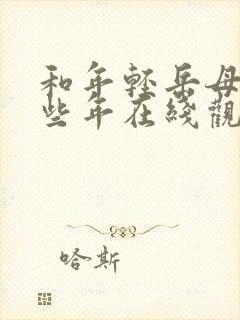 和年轻岳母
些年在线觀
哈斯